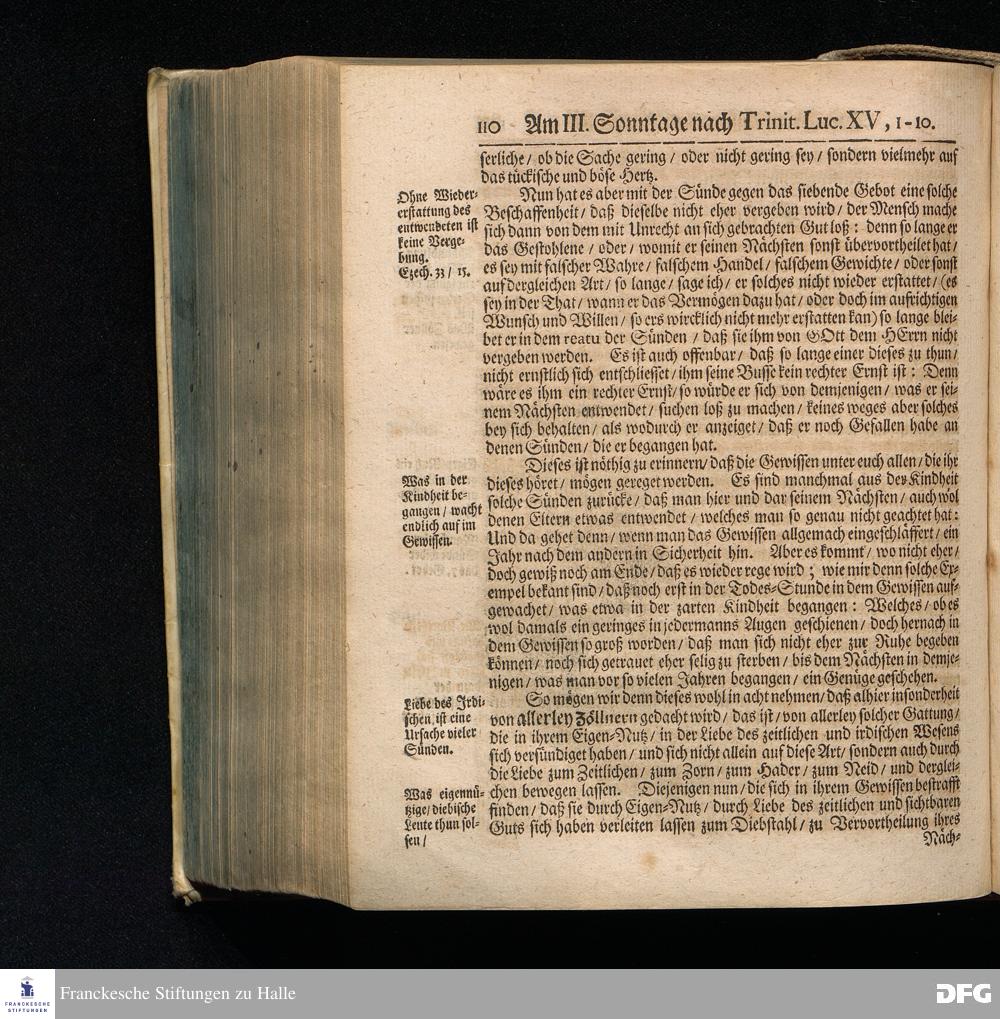 110 Am III. Sonntage nach Trinit. Luc. XV, 1-10.
serliche / ob die Sache gering / oder nicht gering sey / sondern vielmehr auf
das tückische und böse Hertz.
Nun hat es aber mit der Sünde gegen das siebende Gebot eine solche
Beschaffenheit / daß dieselbe nicht eher vergeben wird / der Mensch mache
sich dann von dem mit Unrecht an sich gebrachten Gut loß : denn so lange er
das Gestohlene / oder / womit er seinen Nächsten sonst übervortheilet hat /
es sey mit falscher Wahre / falschem Handel / falschem Gewichte / oder sonst
auf dergleichen Art / so lange / sage ich / er solches nicht wieder erstattet / (es
sey in der That / wann er das Vermögen dazu hat / oder doch im aufrichtigen
Wunsch und Willen / so ers wircklich nicht mehr erstatten kan) so lange blei-
bet er in dem reatu der Sünden / daß sie ihm von GOtt dem HErrn nicht
vergeben werden. Es ist auch offenbar / daß so lange einer dieses zu thun /
nicht ernstlich sich entschliesset / ihm seine Busse kein rechter Ernst ist : Denn
wäre es ihm ein rechter Ernst / so würde er sich von demjenigen / was er sei-
nem Nächsten entwendet / suchen loß zu machen / keines weges aber solches
bey sich behalten / als wodurch er anzeiget / daß er noch Gefallen habe an
denen Sünden / die er begangen hat.
Ohne Wieder-
erstattung des
entwendeten ist
keine Verge-
bung.
Ezech. 33 / 15.
Dieses ist nöthig zu erinnern / daß die Gewissen unter euch allen / die ihr
dieses höret / mögen gereget werden. Es sind manchmal aus der Kindheit
solche Sünden zurücke / daß man hier und dar seinem Nächsten / auch wol
denen Eltern etwas entwendet / welches man so genau nicht geachtet hat :
Und da gehet denn / wenn man das Gewissen allgemach eingeschläffert / ein
Jahr nach dem andern in Sicherheit hin. Aber es kommt / wo nicht eher /
doch gewiß noch am Ende / daß es wieder rege wird ; wie mir denn solche Ex-
empel bekant sind / daß noch erst in der Todes-Stunde in dem Gewissen auf-
gewachet / was etwa in der zarten Kindheit begangen : Welches / ob es
wol damals ein geringes in jedermanns Augen geschienen / doch hernach in
dem Gewissen so groß worden / daß man sich nicht eher zur Ruhe begeben
können / noch sich getrauet eher selig zu sterben / bis dem Nächsten in demje-
nigen / was man vor so vielen Jahren begangen / ein Genüge geschehen.
Was in der
Kindheit be-
gangen / wacht
endlich auf im
Gewissen.
So mögen wir denn dieses wohl in acht nehmen / daß alhier insonderheit
von allerley Zöllnern gedacht wird / das ist / von allerley solcher Gattung /
die in ihrem Eigen-Nutz / in der Liebe des zeitlichen und irdischen Wesens
sich versündiget haben / und sich nicht allein auf diese Art / sondern auch durch
die Liebe zum Zeitlichen / zum Zorn / zum Hader / zum Neid / und derglei-
chen bewegen lassen. Diejenigen nun / die sich in ihrem Gewissen bestrafft
finden / daß sie durch Eigen-Nutz / durch Liebe des zeitlichen und sichtbaren
Guts sich haben verleiten lassen zum Diebstahl / zu Vervortheilung ihres
Näch-
Liebe des Irdi-
schen ist eine
Ursache vieler
Sünden.
Was eigennü-
tzige / diebische
Leute thun sol-
len /
FRANCKESCHE
STIFTUNGEN
Franckesche Stiftungen zu Halle
DFG